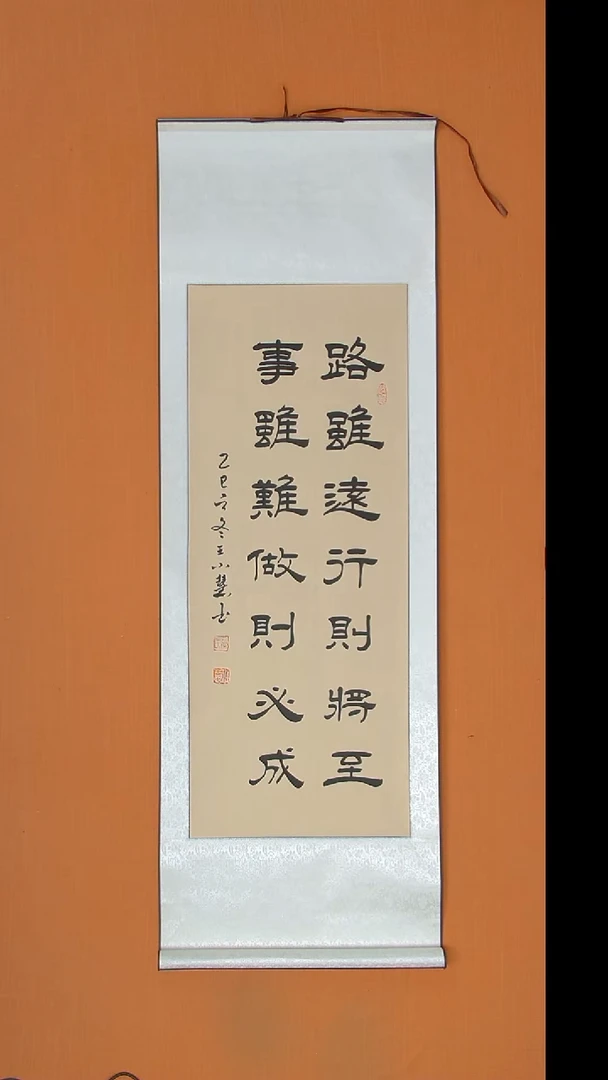 路雖遠行則將至
事雖難做則必成
乙巳立冬王小慧书